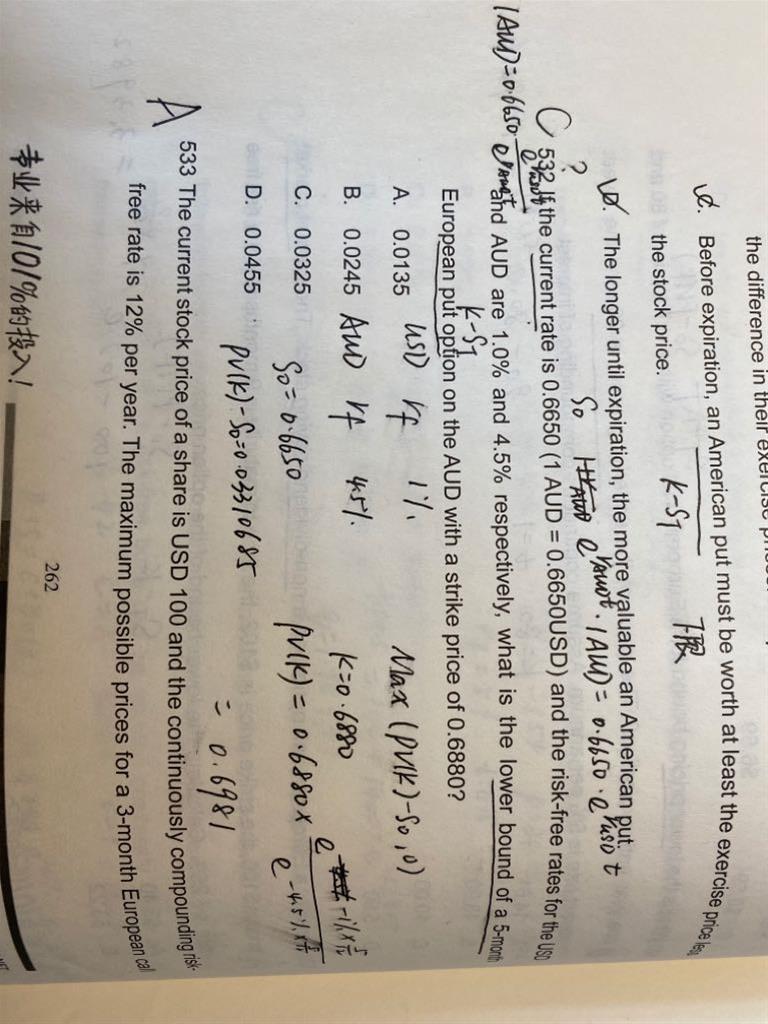 the difference in their exercise
c. Before expiration, an American put must be worth at least the exercise price less
the stock price.
K-S_T
下限
D. The longer until expiration, the more valuable an American put.
S_0 e^{r_{AUD}t} · 1AUD = 0.6650 · e^{r_{USD}t}
C ?
532 If the current rate is 0.6650 (1 AUD = 0.6650USD) and the risk-free rates for the USD
1AUD = 0.6650
and AUD are 1.0% and 4.5% respectively, what is the lower bound of a 5-month
European put option on the AUD with a strike price of 0.6880?
K-S_T
A. 0.0135
USD rf 1%
Max (PV(K)-S_0, 0)
B. 0.0245
AUD rf 4.5%
K=0.6880
C. 0.0325
S_0 = 0.6650
PV(K) = 0.6880 × e^{-1%×5/12} / e^{-4.5%×5/12}
D. 0.0455
PV(K)-S_0=0.03310685
= 0.6981
A
533 The current stock price of a share is USD 100 and the continuously compounding risk-
free rate is 12% per year. The maximum possible prices for a 3-month European call
262
专业来自101%的投入!